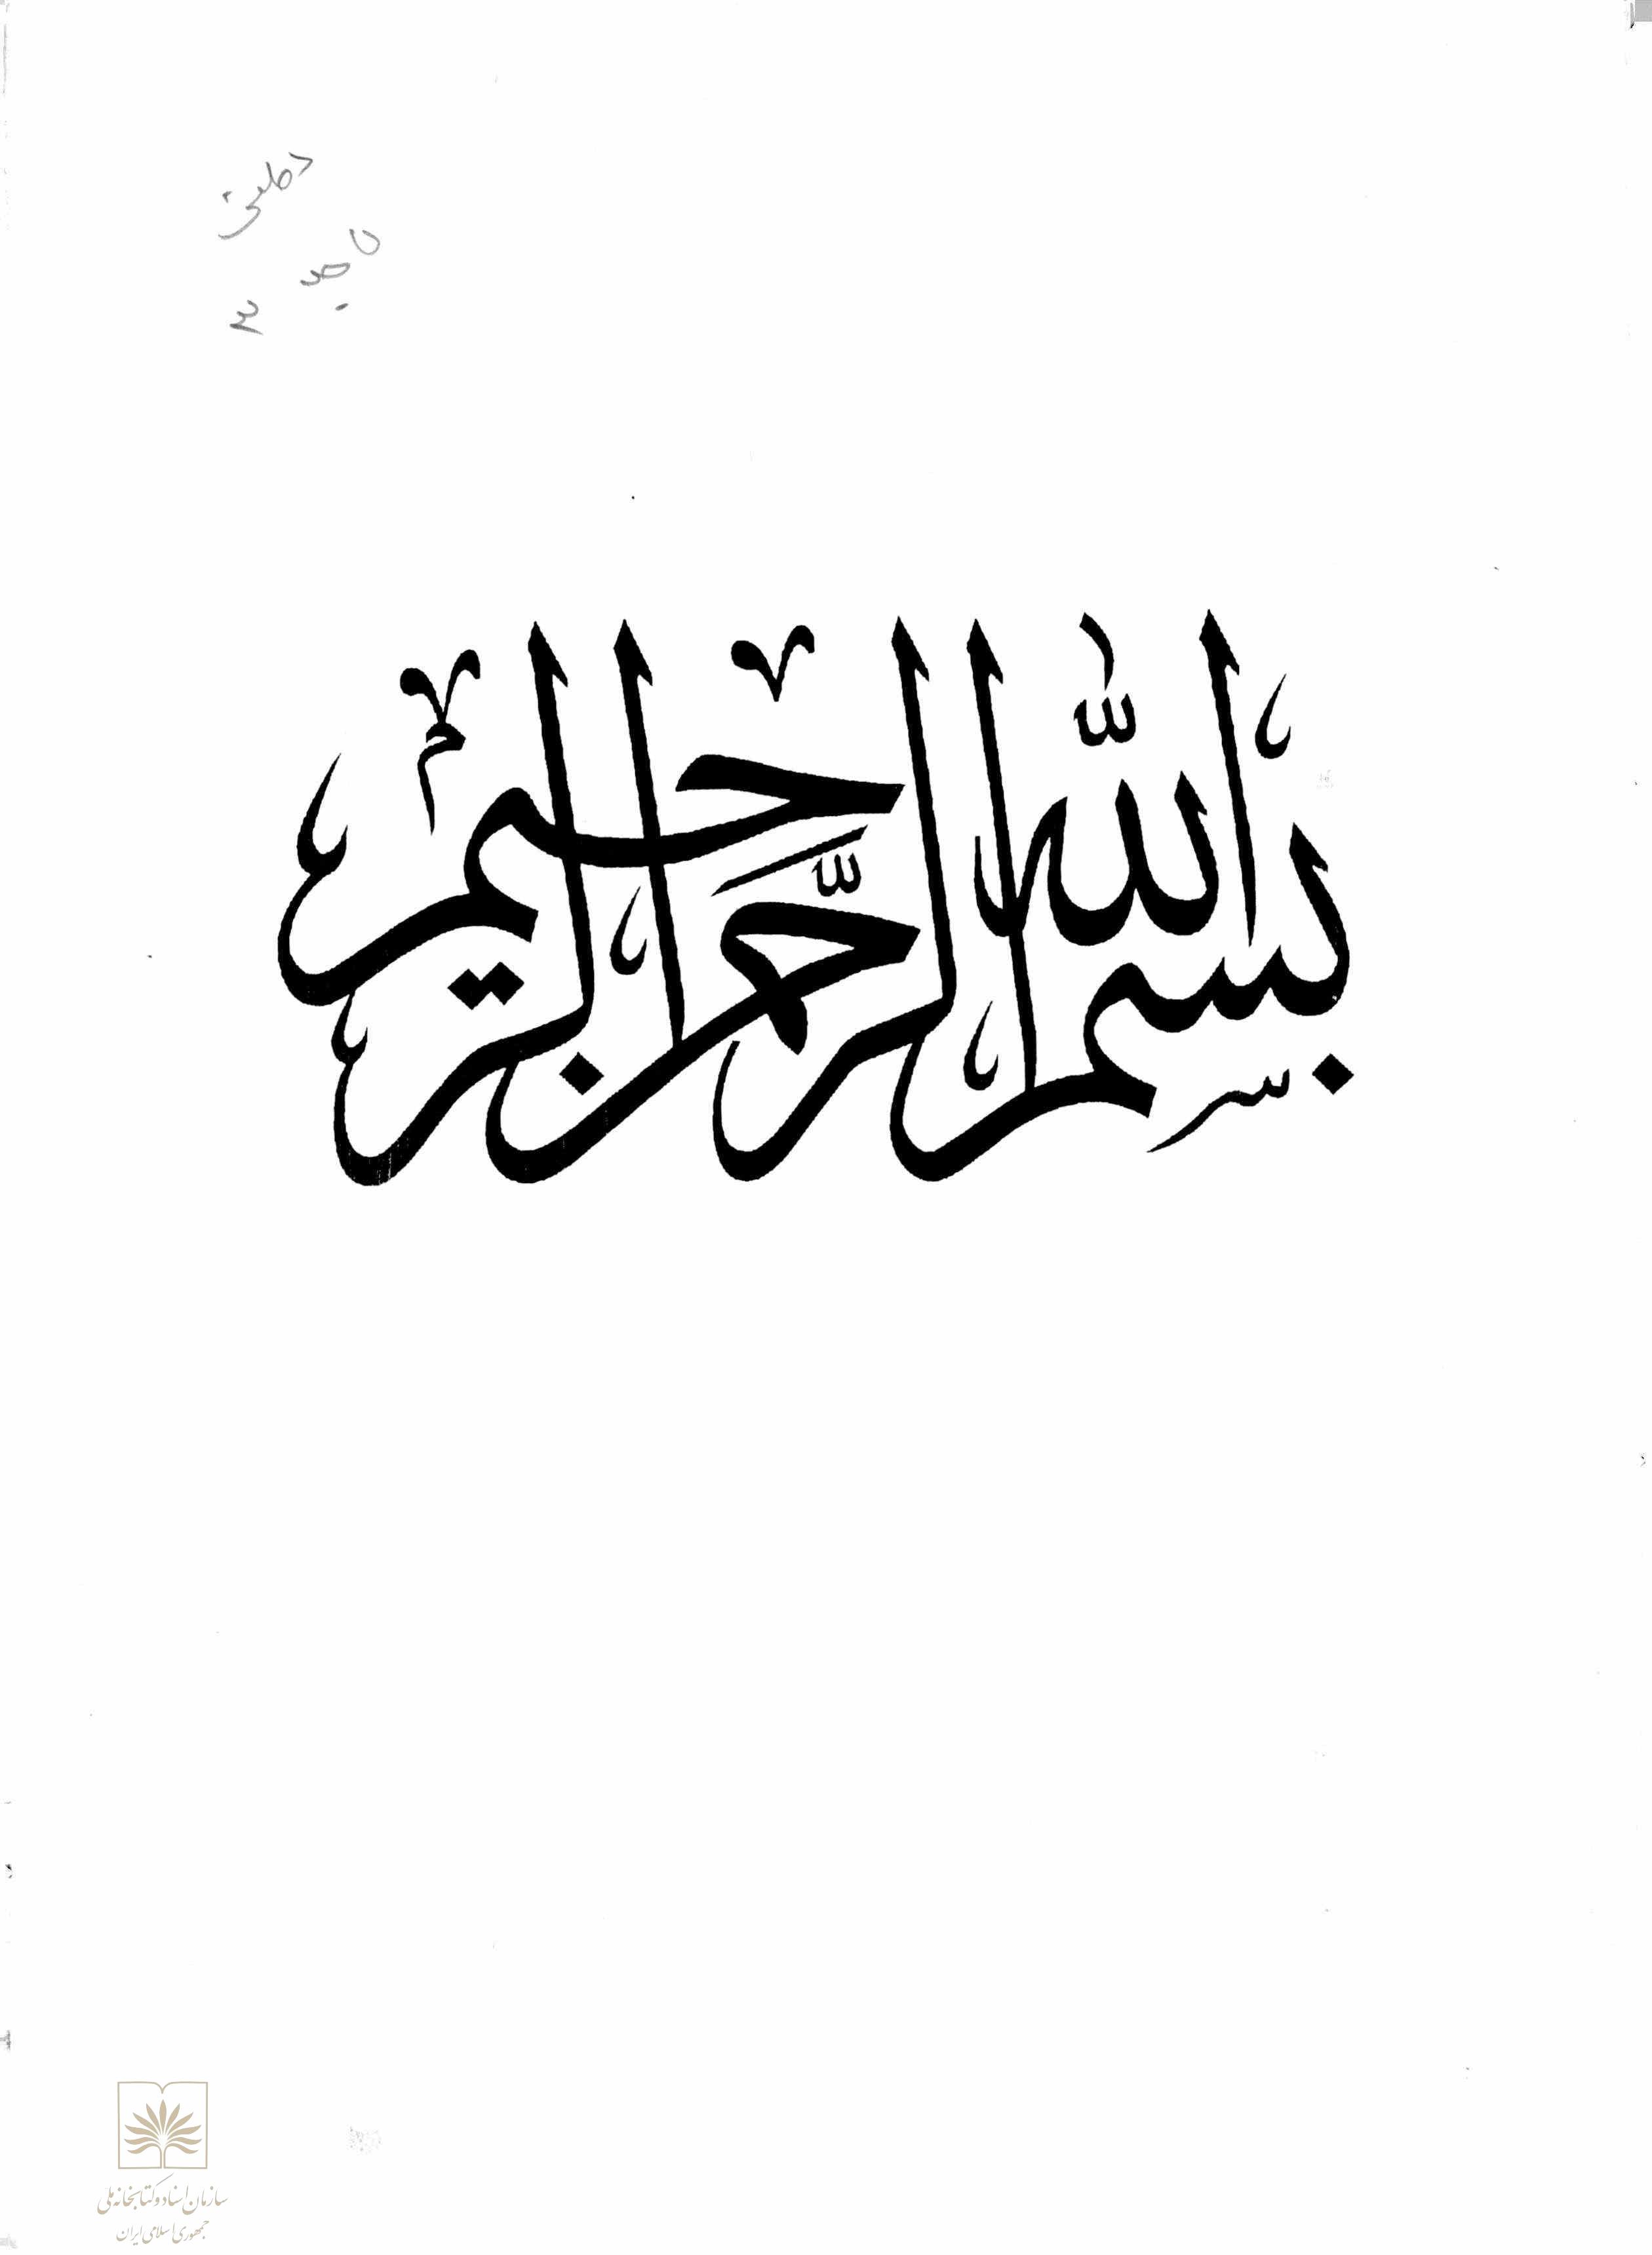 بسم الله الرحمن الرحیم
سازمان اسناد و کتابخانه ملی
جمهوری اسلامی ایران